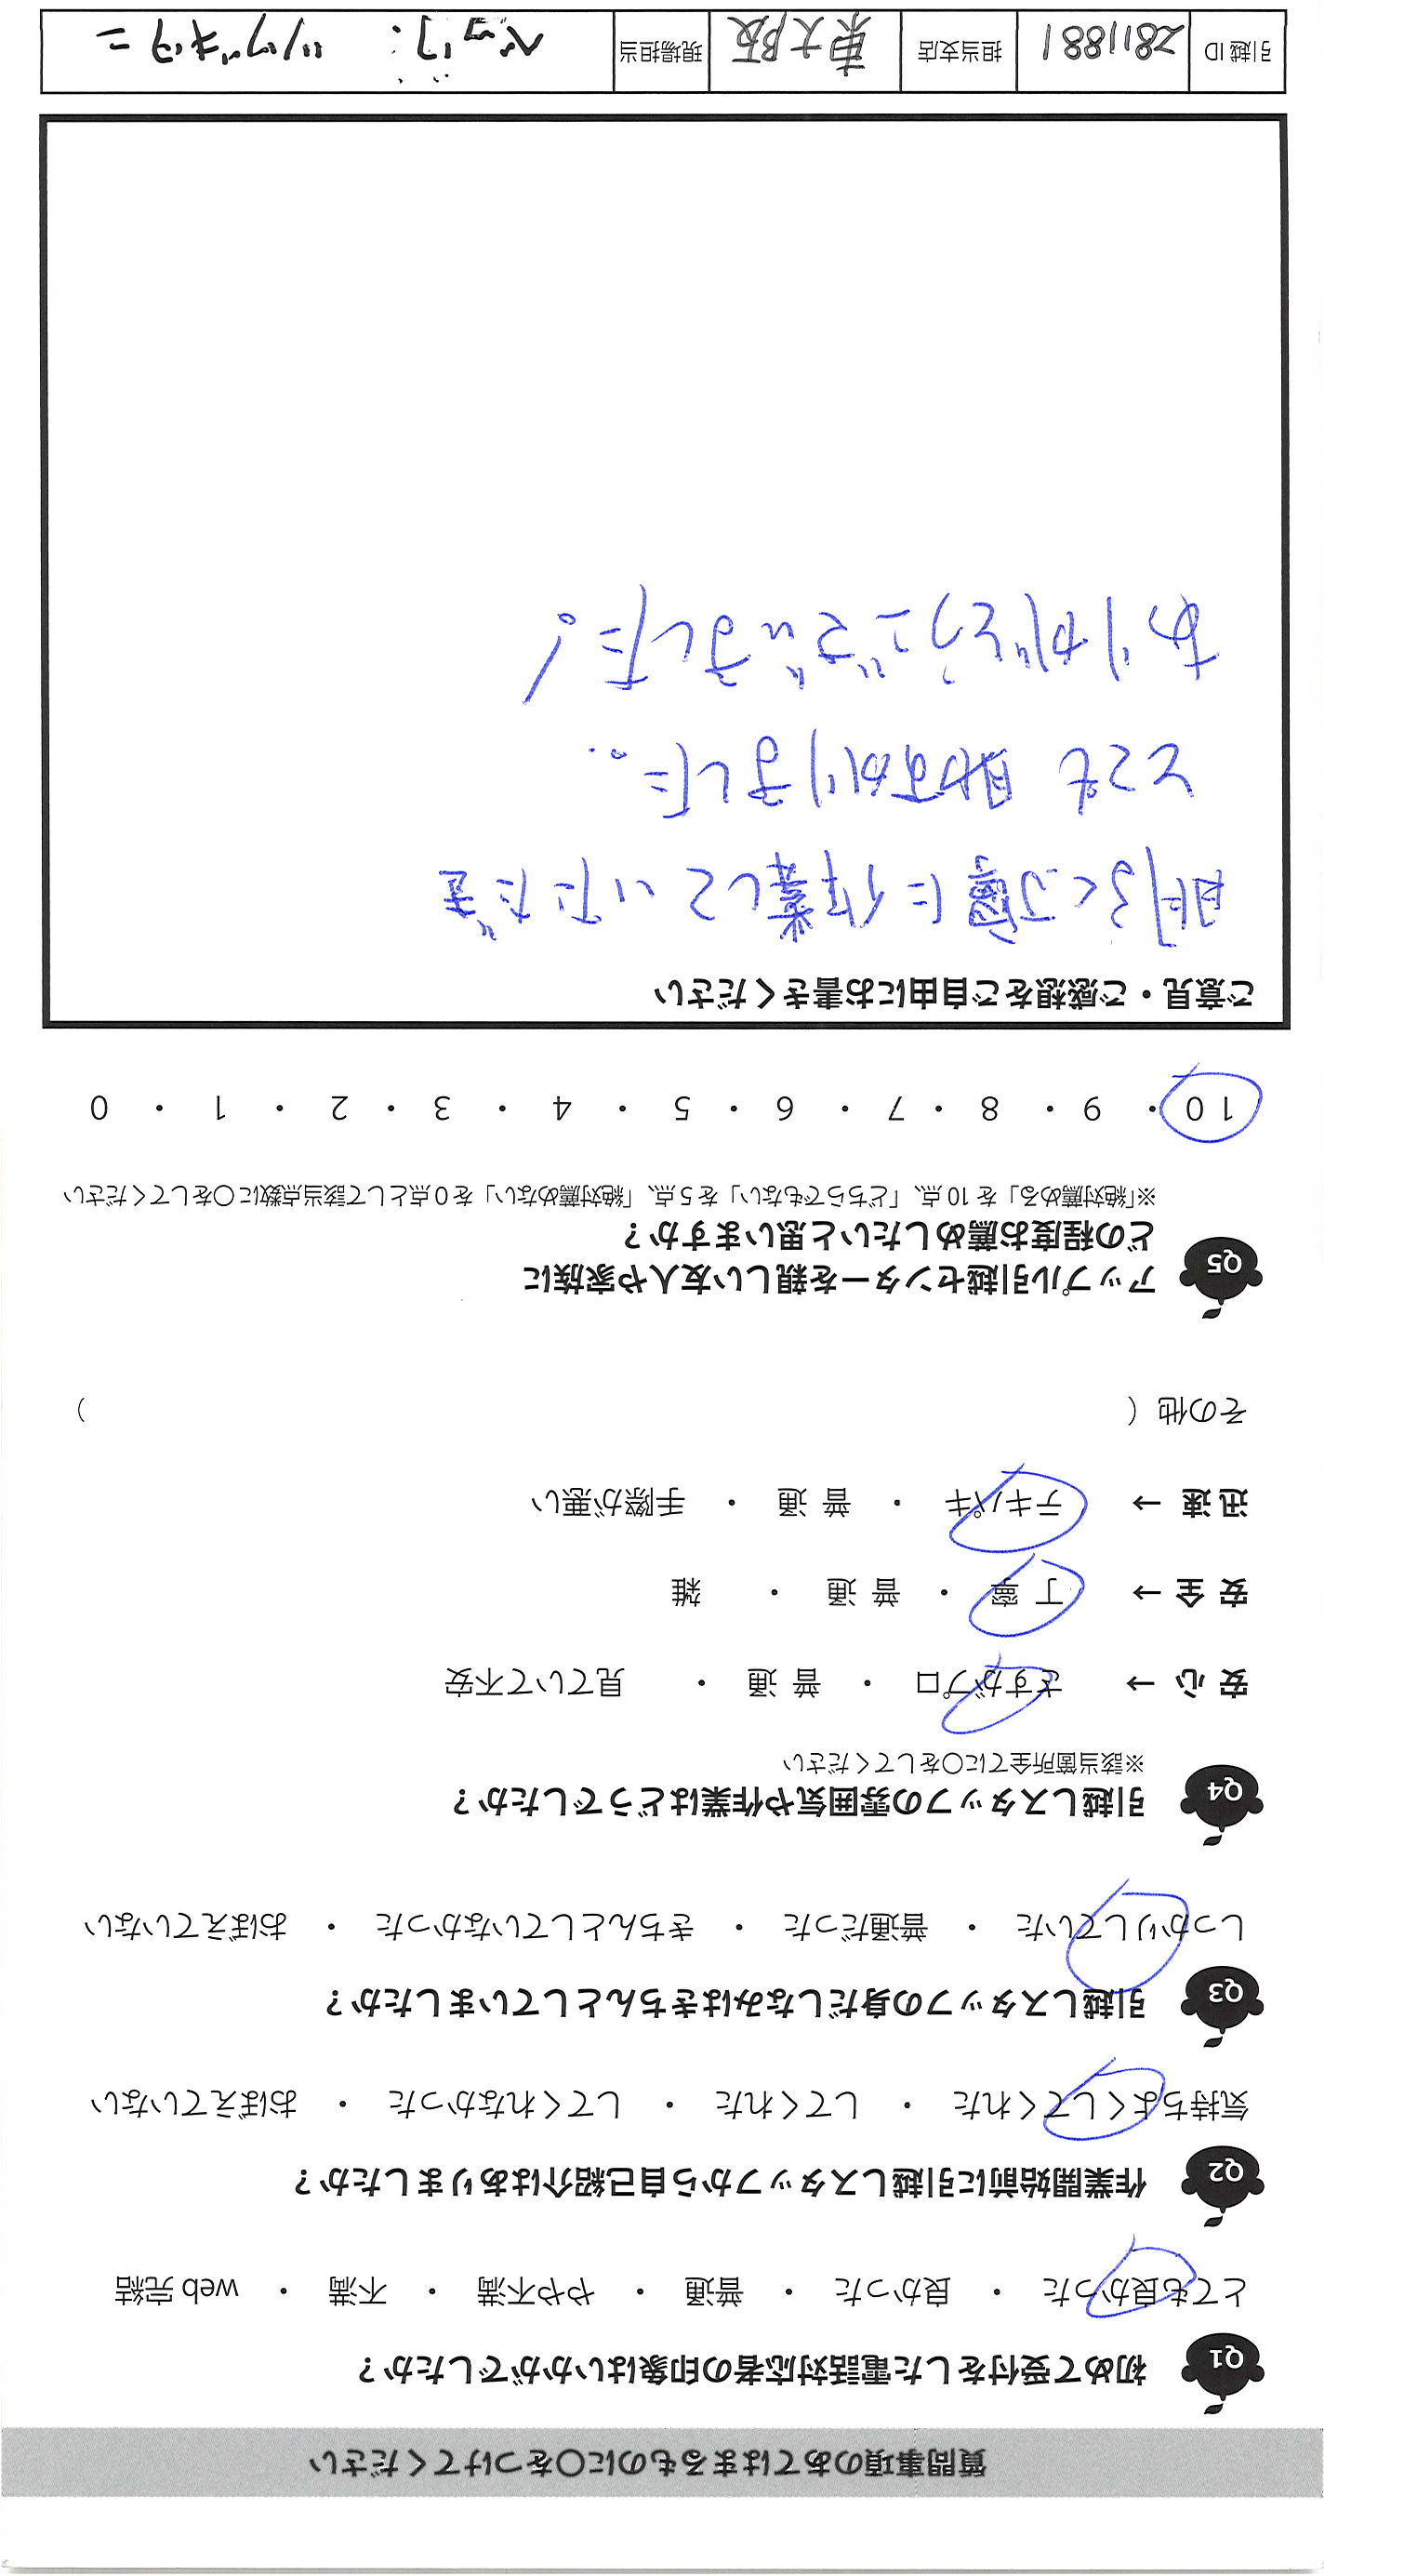 質問事項のあてはまるものに〇をつけてください
Q1 初めて受付をした電話対応者の印象はいかがでしたか？
とても良かった ・ 良かった ・ 普通 ・ やや不満 ・ 不満 ・ web 完結
Q2 作業開始前に引越しスタッフから自己紹介はありましたか？
気持ちよくしてくれた ・ してくれた ・ してくれなかった ・ おぼえていない
Q3 引越しスタッフの身だしなみはきちんとしていましたか？
しっかりしていた ・ 普通だった ・ きちんとしていなかった ・ おぼえていない
Q4 引越しスタッフの雰囲気や作業はどうでしたか？
※該当箇所全てに〇をしてください
安 心 → さすがプロ ・ 普 通 ・ 見ていて不安
安 全 → 丁 寧 ・ 普 通 ・ 雑
迅 速 → テキパキ ・ 普 通 ・ 手際が悪い
その他（ ）
Q5 アップル引越センターを親しい友人や家族に
どの程度お薦めしたいと思いますか？
※「絶対薦める」を 10 点、「どちらでもない」を 5 点、「絶対薦めない」を 0 点として該当点数に〇をしてください
10 ・ 9 ・ 8 ・ 7 ・ 6 ・ 5 ・ 4 ・ 3 ・ 2 ・ 1 ・ 0
ご意見・ご感想をご自由にお書きください
明るく丁寧に作業していただき
とても助かりました。
ありがとうございました！
引越 ID 2811881 担当支店 東大阪 現場担当